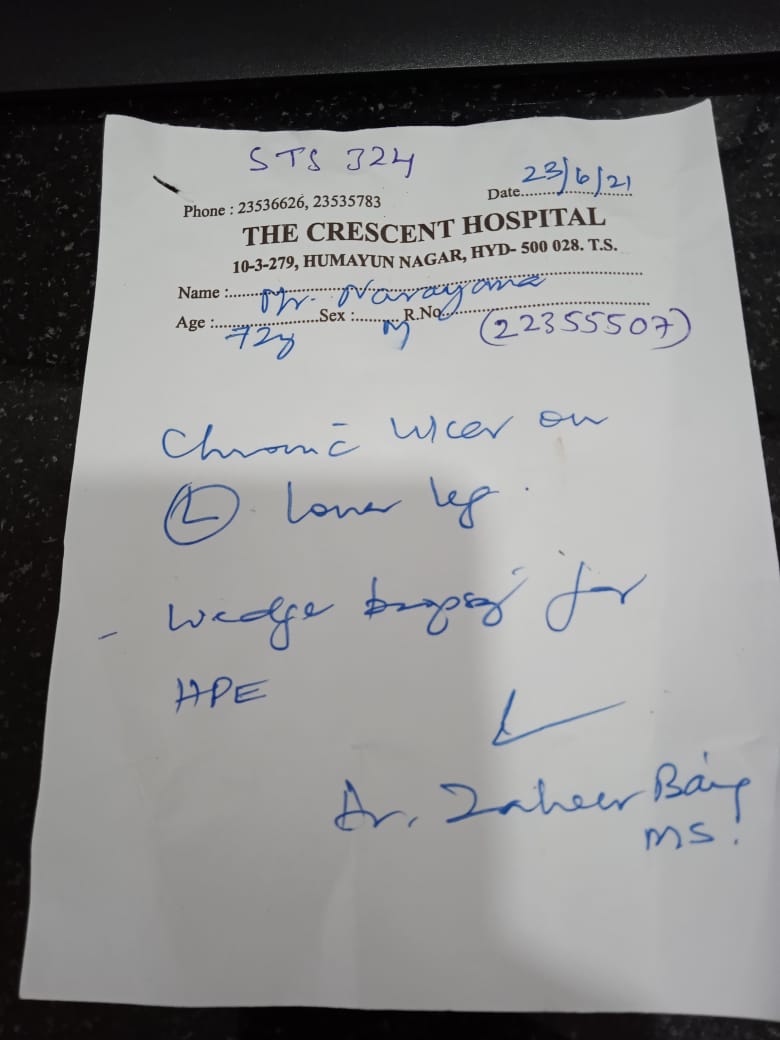 STS 324
Phone : 23536626, 23535783
Date 23/6/21
THE CRESCENT HOSPITAL
10-3-279, HUMAYUN NAGAR, HYD- 500 028. T.S.
Name : Mr. Narayana
Age : 72y Sex : M R.No. (22355507)
Chronic Ulcer on
(L) lower leg.
- Wedge biopsy for
HPE
Dr. Zaheer Baig
MS.